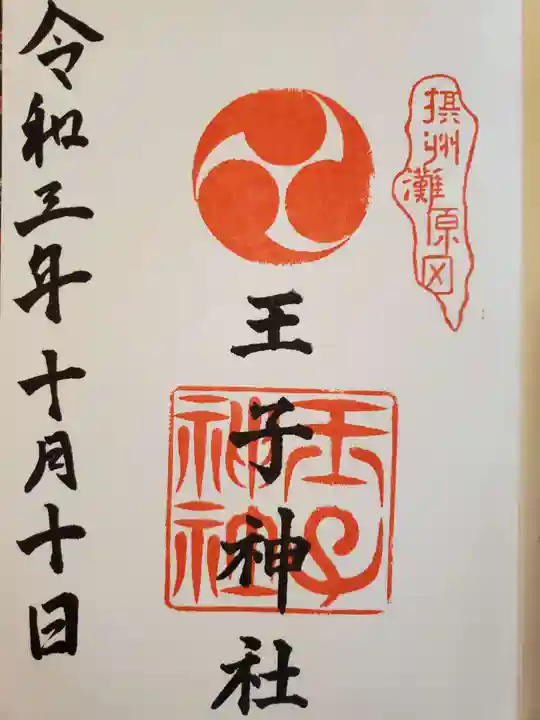 摂州
灘
原
王子神社
王子
神社
令和三年十月十日